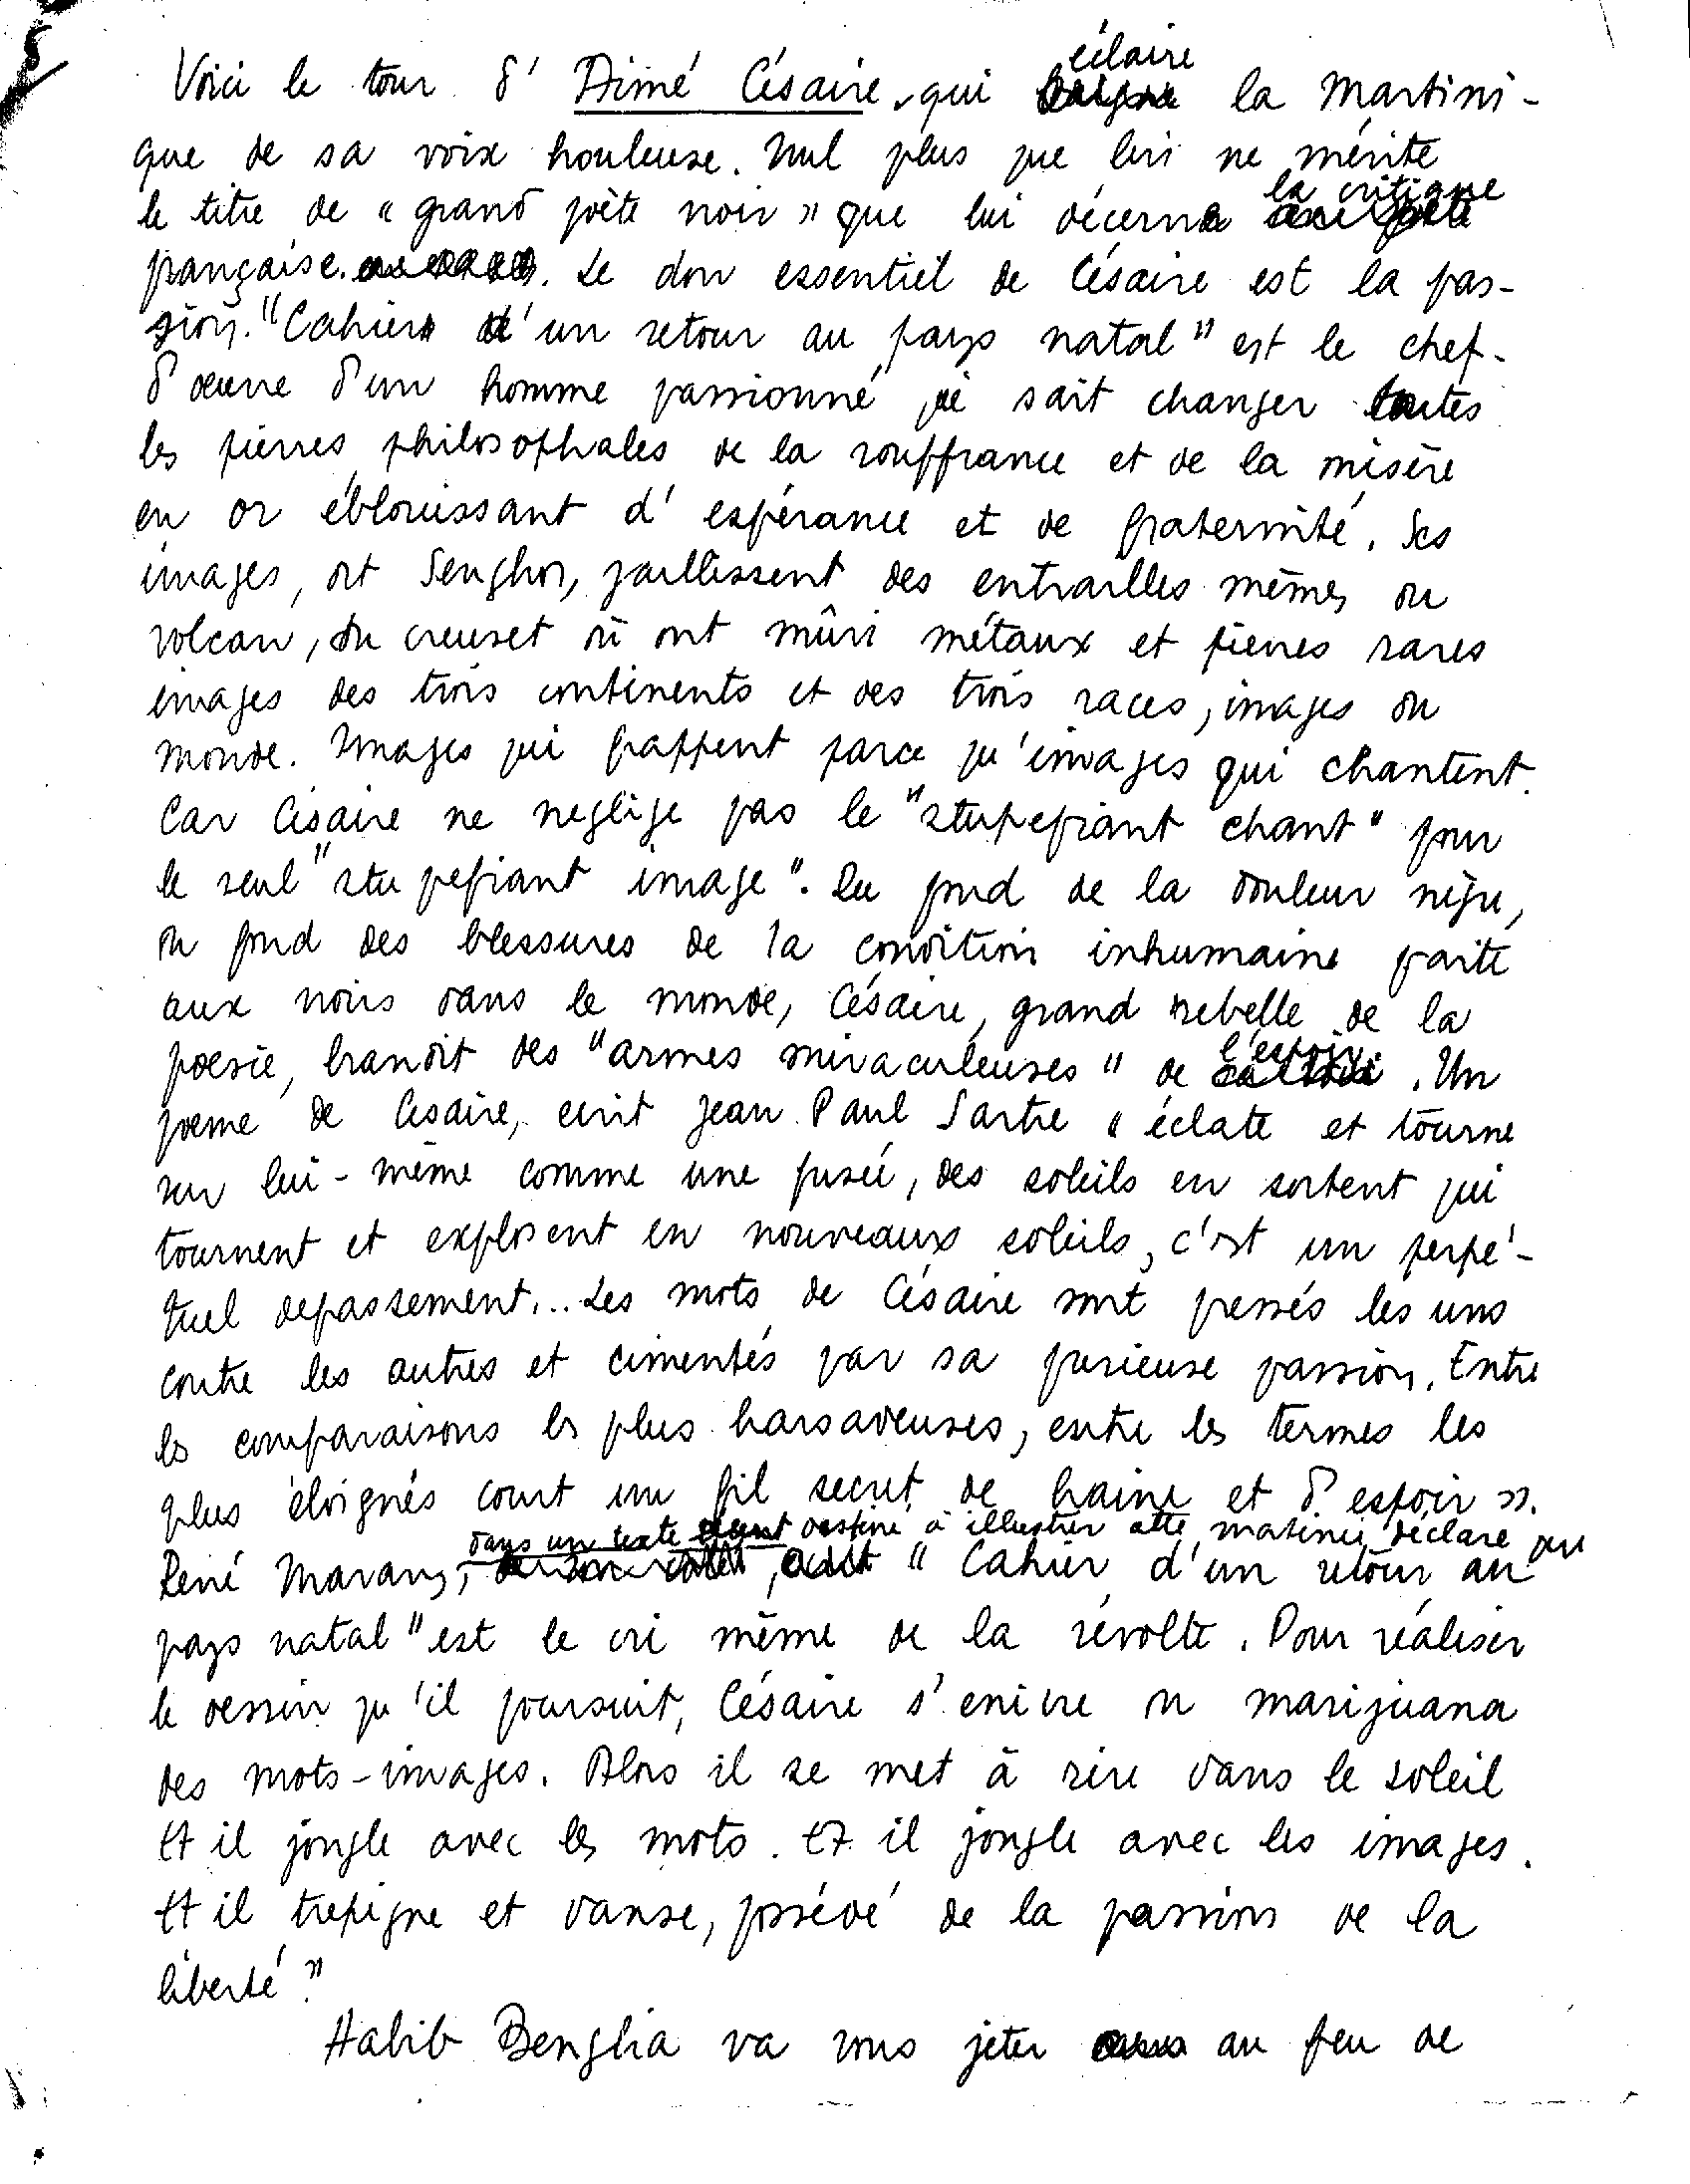 Voici le tour d' Aimé Césaire, qui éclaire la Martini-
que de sa voix houleuse. Nul plus que lui ne mérite
le titre de « grand poète noir » que lui décerne la critique
française. Le don essentiel de Césaire est la pas-
sion. "Cahier d'un retour au pays natal" est le chef-
d'œuvre d'un homme passionné qui sait changer toutes
les pierres philosophales de la souffrance et de la misère
en or éblouissant d'espérance et de fraternité. Ses
images, dit Senghor, jaillissent des entrailles mêmes du
volcan, du creuset où ont mûri métaux et pierres rares
images des trois continents et des trois races, images du
monde. Images qui frappent parce qu'images qui chantent.
Car Césaire ne neglige pas le "stupefiant chant" pour
le seul "stupefiant image". Du fond de la douleur nègre,
du fond des blessures de la condition inhumaine faite
aux noirs dans le monde, Césaire, grand rebelle de la
poesie, brandit des "armes miraculeuses" de l'espoir. Un
poeme de Cesaire, ecrit Jean Paul Sartre « éclate et tourne
sur lui-même comme une fusée, des soleils en sortent qui
tournent et explosent en nouveaux soleils, c'est un perpé-
tuel depassement... Les mots de Césaire sont pressés les uns
contre les autres et cimentés par sa furieuse passion. Entre
les comparaisons les plus hasardeuses, entre les termes les
plus éloignés court un fil secret de haine et d'espoir ».
dans un texte destiné à illustrer cette matinée, déclare que
René Marans, " Cahier d'un retour au
pays natal" est le cri même de la révolte. Pour réaliser
le dessin qu'il poursuit, Césaire s'enivre du marijuana
des mots-images. Alors il se met à rire dans le soleil
Et il jongle avec les mots. Et il jongle avec les images.
Et il trepigne et danse, possédé de la passion de la
liberté."
Habib Benglia va vous jeter au feu de